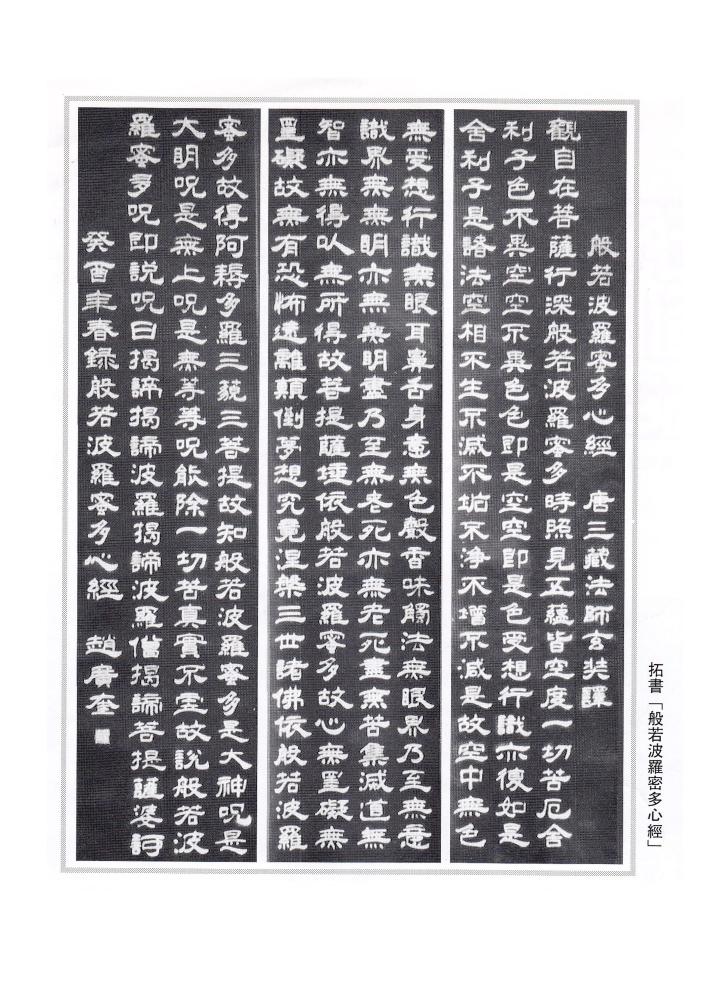 拓書「般若波羅密多心經」
般若波羅蜜多心經 唐三藏法師玄奘譯
觀自在菩薩行深般若波羅蜜多時照見五蘊皆空度一切苦厄舍
利子色不異空空不異色色即是空空即是色受想行識亦復如是
舍利子是諸法空相不生不滅不垢不淨不增不減是故空中無色
無受想行識無眼耳鼻舌身意無色聲香味觸法無眼界乃至無意
識界無無明亦無無明盡乃至無老死亦無老死盡無苦集滅道無
智亦無得以無所得故菩提薩埵依般若波羅蜜多故心無罣礙無
罣礙故無有恐怖遠離顛倒夢想究竟涅槃三世諸佛依般若波羅
蜜多故得阿耨多羅三藐三菩提故知般若波羅蜜多是大神呪是
大明呪是無上呪是無等等呪能除一切苦真實不虛故說般若波
羅蜜多呪即說呪曰揭諦揭諦波羅揭諦波羅僧揭諦菩提薩婆訶
癸酉年春錄般若波羅蜜多心經 趙廣奎